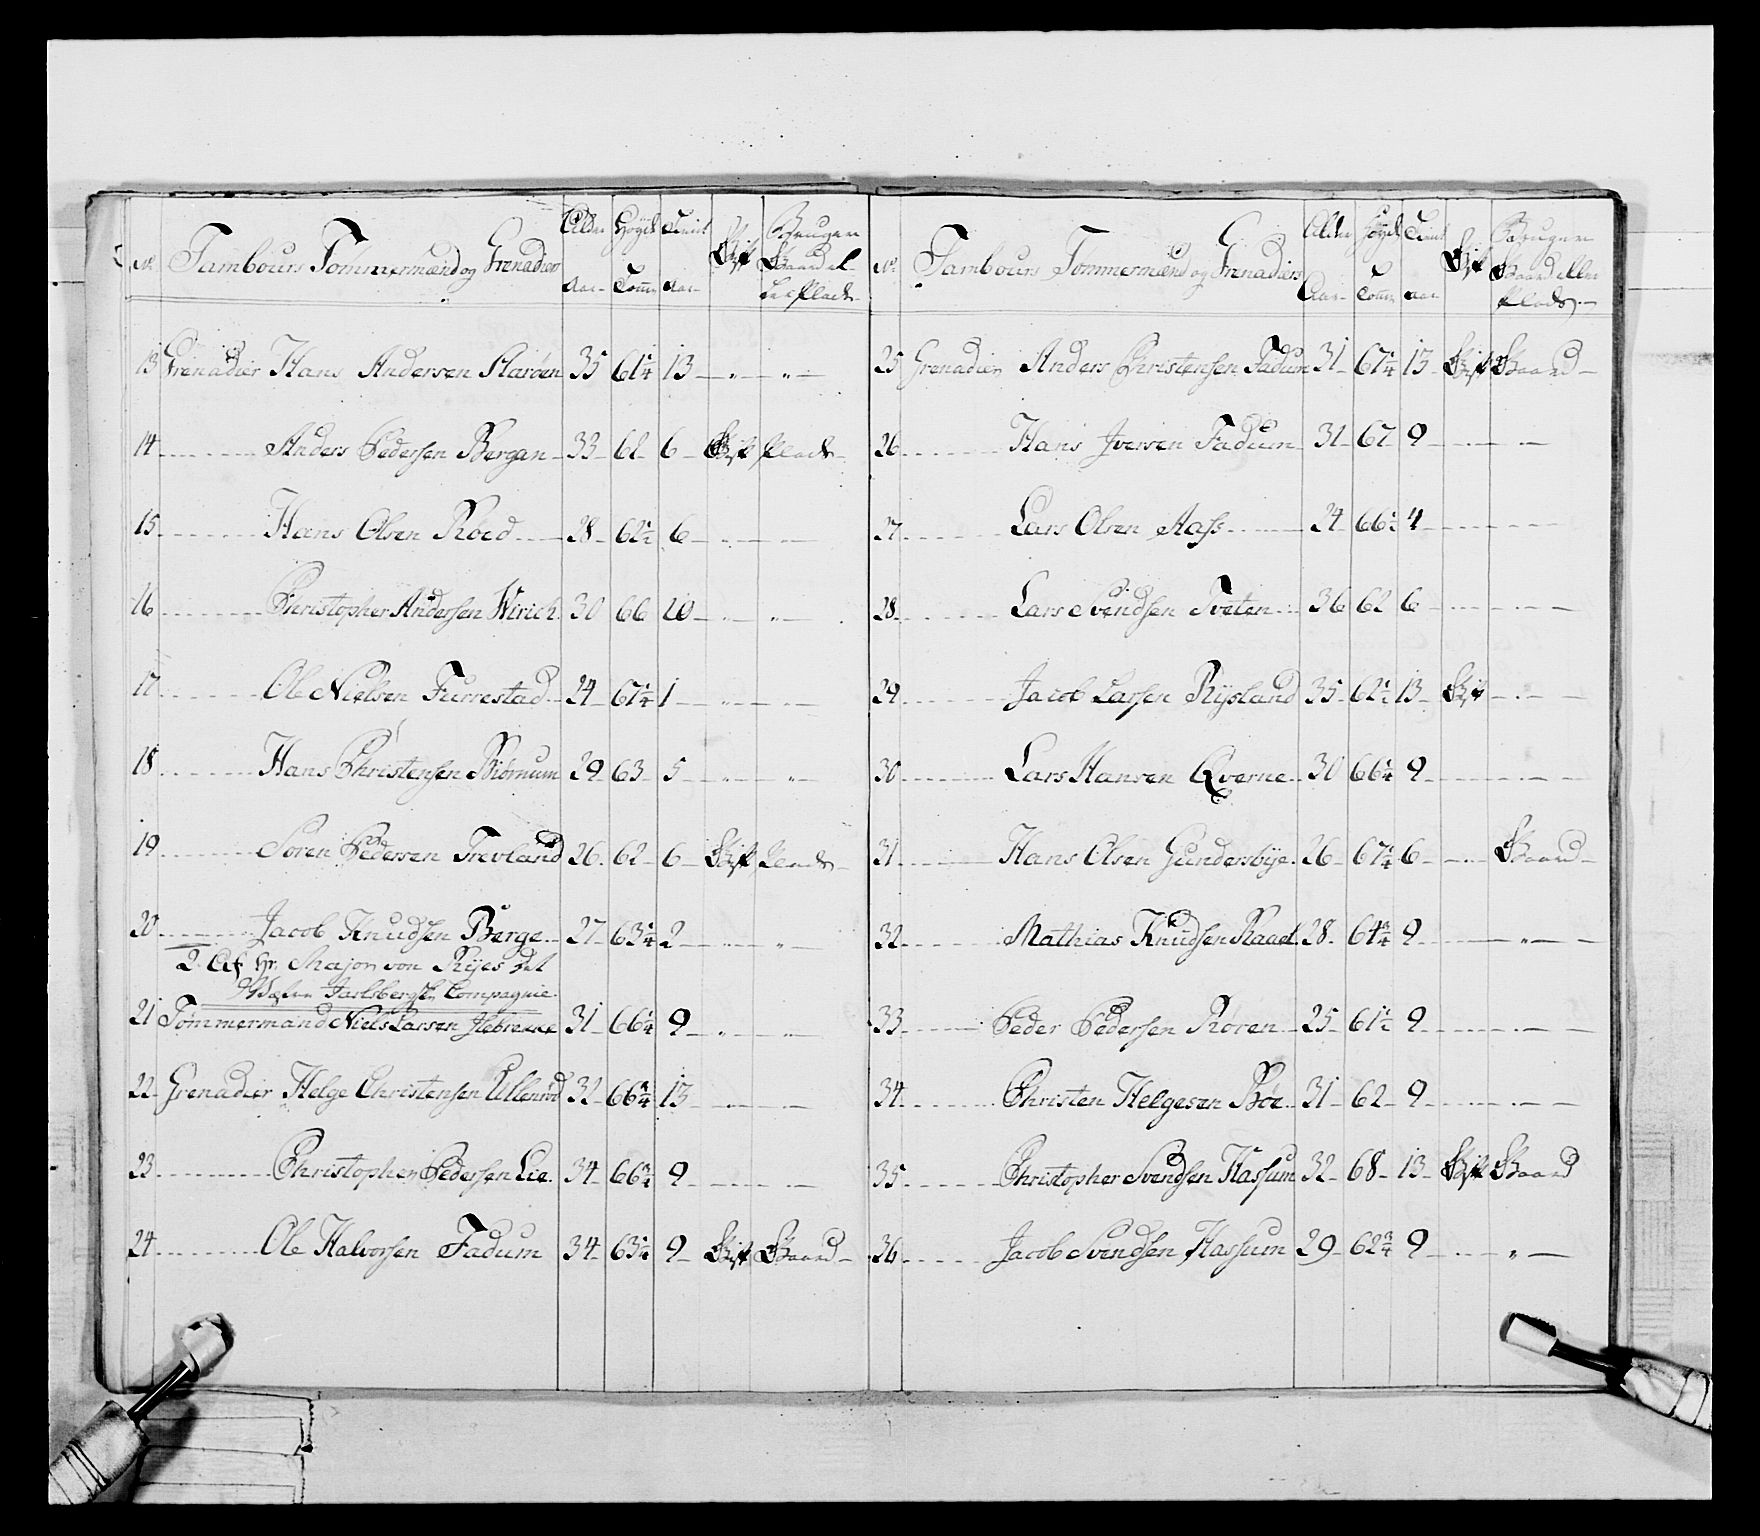 No. Tambours Tömmermænd og Grenadier Alder Aar Höyde Tomr Tienst Aar Gift Bruger Gaard el- ler Plads
13 Grenadier Hans Andersen Slaröen 35 61¼ 13 — „ — „ —
14 Anders Pedersen Bergan 33 61 6 Gift Plads
15 Hans Olsen Röed 28 62½ 6
16 Christopher Andersen Wirich 30 66 10 — „ — „ —
17 Ole Nielsen Furrestad 24 67¼ 1
18 Hans Christensen Biörnum 29 63 5
19 Sören Pedersen Trevland 26 62 6 Gift Plads
20 Jacob Knudsen Berge 27 63¼ 2
2. Af Hr. Major von Ryes det
Jarlsbergske Compagnie
21 Tömmermand Niels Larsen 31 66¼ 9
22 Grenadier Helge Christensen Ulleröd 32 66¾ 13
23 Christopher Pedersen Lie 34 66¾ 9
24 Ole Halvorsen Fadum 34 63¼ 9 Gift Gaard
No. Tambours Tömmermænd og Grenadiers Alder Aar Höyde Tomr Tienst Aar Gift Bruger Gaard eller Plads
25 Grenadier Anders Christensen Fadum 31 67¼ 13 Gift Gaard
26 Hans Iversen Fadum 31 67 9
27 Lars Olsen Aass 24 66½ 4
28 Lars Svendsen Tveten 36 62 6
29 Jacob Larsen Rysland 35 62½ 13 Gift
30 Lars Hansen Qverne 30 66¼ 9
31 Hans Olsen Gundersbye 26 67¼ 6 Gaard
32 Mathias Knudsen Raaet 28 64¾ 9
33 Peder Pedersen Rören 25 61½ 9
34 Christen Helgesen Böe 31 62 9
35 Christopher Svendsen Hassum 32 68 13 Gift Gaard
36 Jacob Svendsen Hassum 29 62¾ 9 — „ —